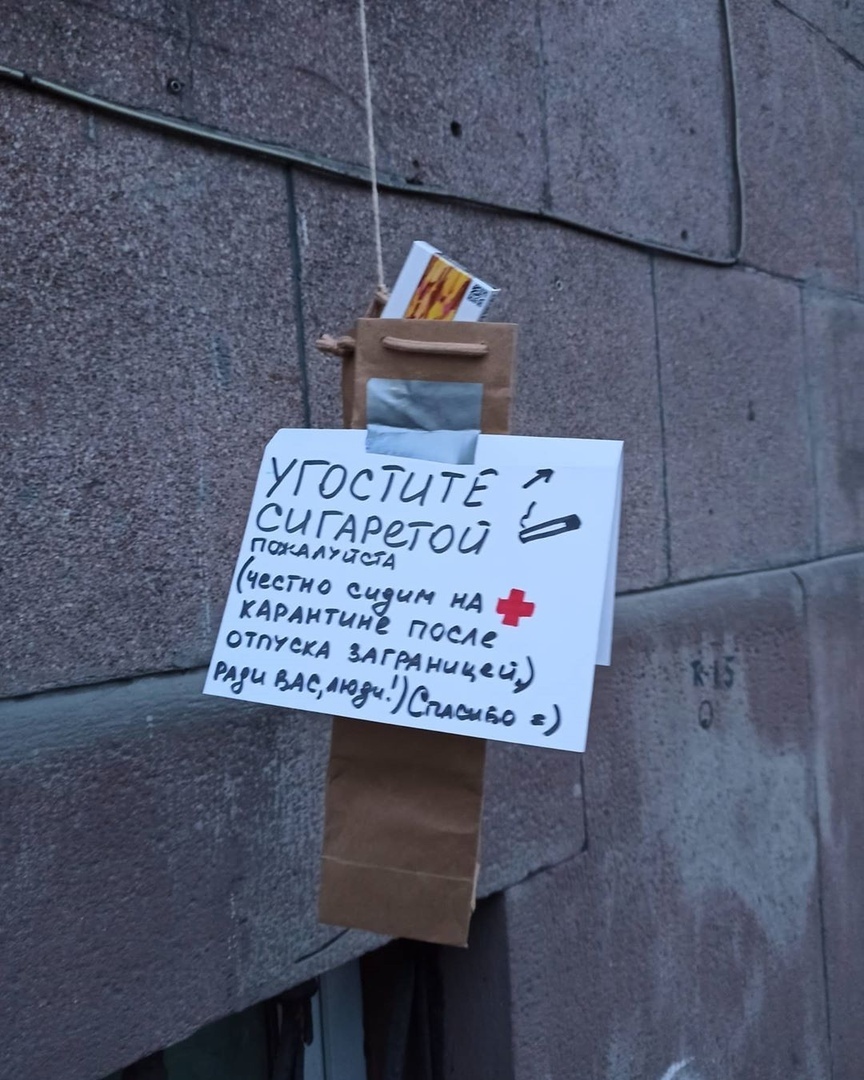 УГОСТИТЕ
СИГАРЕТОЙ
ПОЖАЛУЙСТА
(ЧЕСТНО СИДИМ НА
КАРАНТИНЕ ПОСЛЕ
ОТПУСКА ЗАГРАНИЦЕЙ,)
РАДИ ВАС, ЛЮДИ!) СПАСИБО =)
R-15